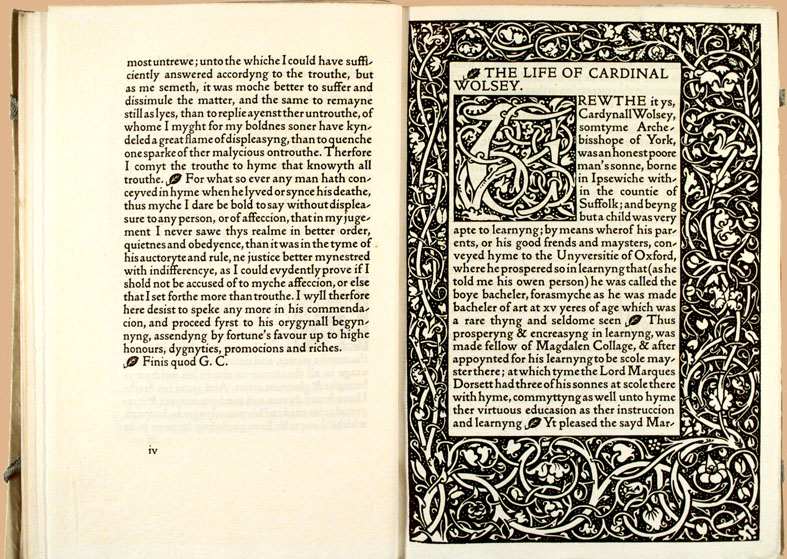 most untrewe; unto the whiche I could have suffi-
ciently answered accordyng to the trouthe, but
as me semeth, it was moche better to suffer and
dissimule the matter, and the same to remayne
still as lyes, than to replie ayenst ther untrouthe, of
whome I myght for my boldnes soner have kyn-
deled a great flame of displeasyng, than to quenche
one sparke of ther malycious ontrouthe. Therfore
I comyt the trouthe to hyme that knowyth all
trouthe. For what so ever any man hath con-
ceyved in hyme when he lyved or synce his deathe,
thus myche I dare be bold to say without displea-
sure to any person, or of affeccion, that in my juge-
ment I never sawe thys realme in better order,
quietnes and obedyence, than it was in the tyme of
his auctoryte and rule, ne justice better mynestred
with indifferencye, as I could evydently prove if I
shold not be accused of to myche affeccion, or else
that I set forthe more than trouthe. I wyll therfore
here desist to speke any more in his commenda-
cion, and proceed fyrst to his orygynall begyn-
nyng, assendyng by fortune's favour up to highe
honours, dygnyties, promocions and riches.
Finis quod G. C.
iv
THE LIFE OF CARDINAL
WOLSEY.
TREWTHE it ys,
Cardynall Wolsey,
somtyme Arche-
bisshope of York,
was an honest poore
man's sonne, borne
in Ipsewiche with-
in the countie of
Suffolk; and beyng
but a child was very
apte to learnyng; by means wherof his par-
ents, or his good frends and maysters, con-
veyed hyme to the Unyversitie of Oxford,
where he prospered so in learnyng that (as he
told me his owen person) he was called the
boye bacheler, forasmyche as he was made
bacheler of art at xv yeres of age which was
a rare thyng and seldome seen Thus
prosperyng & encreasyng in learnyng, was
made fellow of Magdalen Collage, & after
appoynted for his learnyng to be scole may-
ster there; at which tyme the Lord Marques
Dorsett had three of his sonnes at scole there
with hyme, commyttyng as well unto hyme
ther virtuous educasion as ther instruccion
and learnyng Yt pleased the sayd Mar-